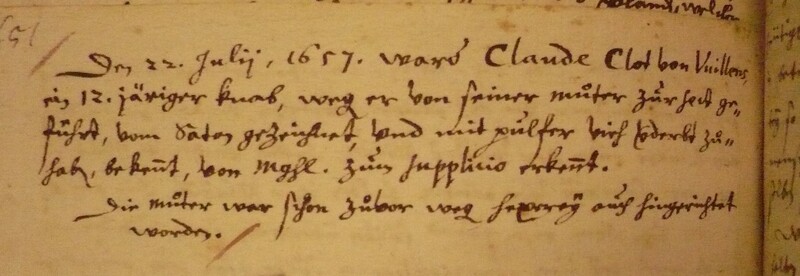 151
Den 22. Julij, 1657. ward Claude Clot von Vuillens,
ein 12. järiger knab, weg er von seiner muͦter zur sect ge-
führt, vom Satan gezeichnet, und mit pulfer vich vderbt zuͦ-
habẽ, bekent, von Mghl. zum supplicio erkent.
Die muͦter war schon zuͦvor weg hexerey auch hingerichtet
worden.